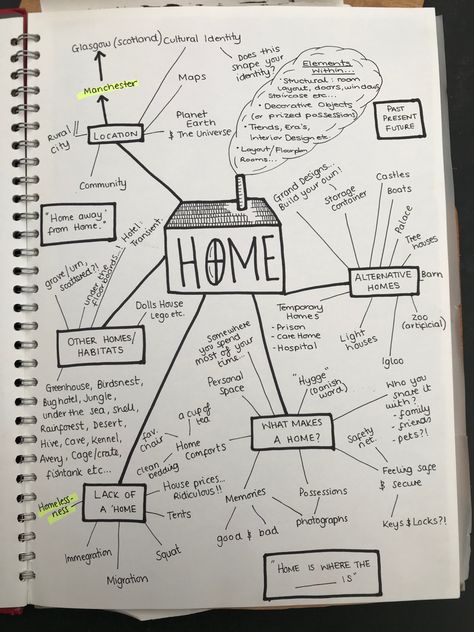 Glasgow (scotland)
Cultural Identity
Does this
shape your
identity?
Manchester
Maps
Rural
City
LOCATION
Planet
Earth
& The Universe
Community
Elements
Within...
• Structural : room
layout, doors, windows
Staircase etc...
• Decorative Objects
(or prized possessions)
• Trends, Era's,
Interior Design etc
• Layout/Floorplan
Rooms...
PAST
PRESENT
FUTURE
"Home away
from Home."
Hotel:
Transient.
grave/urn,
scattered?!
under the
floorboards..!
HOME
Dolls House
Lego etc.
OTHER HOMES/
HABITATS
Greenhouse, Birdsnest,
Bug hotel, Jungle,
under the sea, Shell,
Rainforest, Desert,
Hive, Cave, Kennel,
Avery, Cage/crate,
fishtank etc...
Grand Designs...
Build your own!
Storage
Container
Castles
Boats
Palace
Tree
houses
ALTERNATIVE
HOMES
Barn
Zoo
(artificial)
Igloo
Light
houses
Temporary
Homes
- Prison
- Care Home
- Hospital
Somewhere
you spend
most of your
time...
Personal
Space
"Hygge"
(Danish
word)
Who you
share it
with?
- family
- friends
- pets?!
WHAT MAKES
A HOME?
Safety
net.
Feeling safe
& secure
Keys & Locks?!
a cup of
tea
fav.
chair
Home
Comforts
clean
bedding
Memories
good & bad
Possessions
photographs
House prices...
Ridiculous!!
LACK OF
A 'HOME
Homeless-
ness
Tents
Squat
Immegration
Migration
"HOME IS WHERE THE
______ IS"